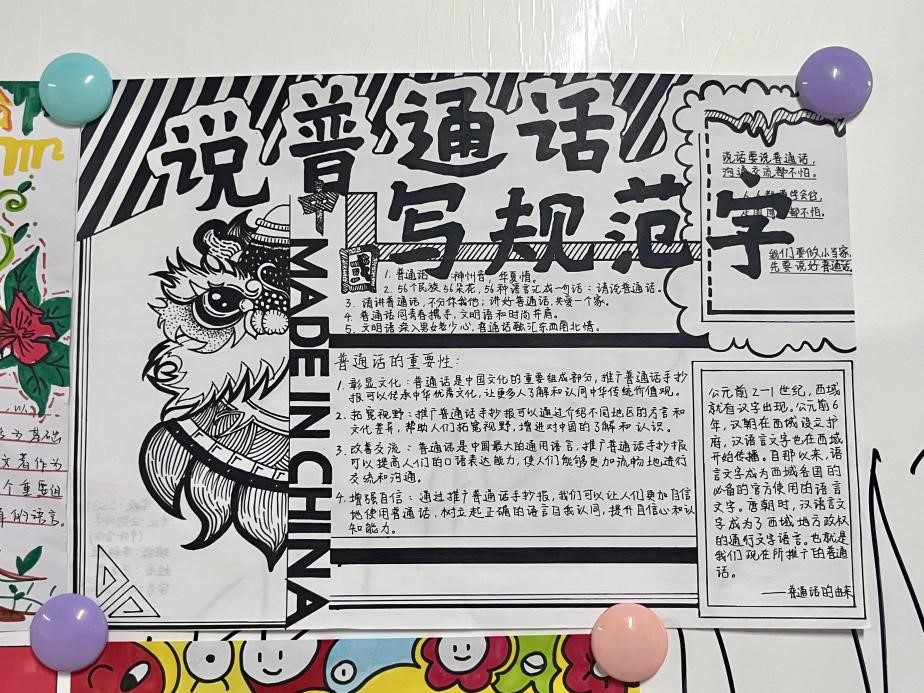 说普通话
写规范字
MADE IN CHINA
说话要说普通话，
沟通交流都不怕。
都不怕。
我们要做小当家，
先要说好普通话
1. 普通话 神州音，华夏情。
2. 56个民族56朵花，56种语言汇成一句话：请说普通话。
3. 请讲普通话，不分你我他；讲好普通话，共爱一个家。
4. 普通话同青春携手，文明语和时尚并肩。
5. 文明语深入男女老少心，普通话融汇东西南北情。
普通话的重要性：
1. 彰显文化：普通话是中国文化的重要组成部分，推广普通话手抄
报可以传承中华优秀文化，让更多人了解和认同中华传统价值观。
2. 拓宽视野：推广普通话手抄报可以通过介绍不同地区的方言和
文化差异，帮助人们拓宽视野，增进对中国的了解和认识。
3. 改善交流：普通话是中国最大的通用语言，推广普通话手抄报
可以提高人们的口语表达能力，使人们能够更加流畅地进行
交流和沟通。
4. 增强自信：通过推广普通话手抄报，我们可以让人们更加自信
地使用普通话，树立起正确的语言自我认同，提升自信心和认
知能力。
公元前2-1世纪，西域
就有汉字出现。公元前6
年，汉朝在西域设立护
府，汉语言文字也在西域
开始传播。自那以来，语
言文字成为西域各国的
必备的官方使用的语言
文字。唐朝时，汉语言文
字成为了西域地方政权
的通行文字语言。也就是
我们现在所推广的普通
话。
——普通话的由来
基础
文著作为
个重要组
的语言。